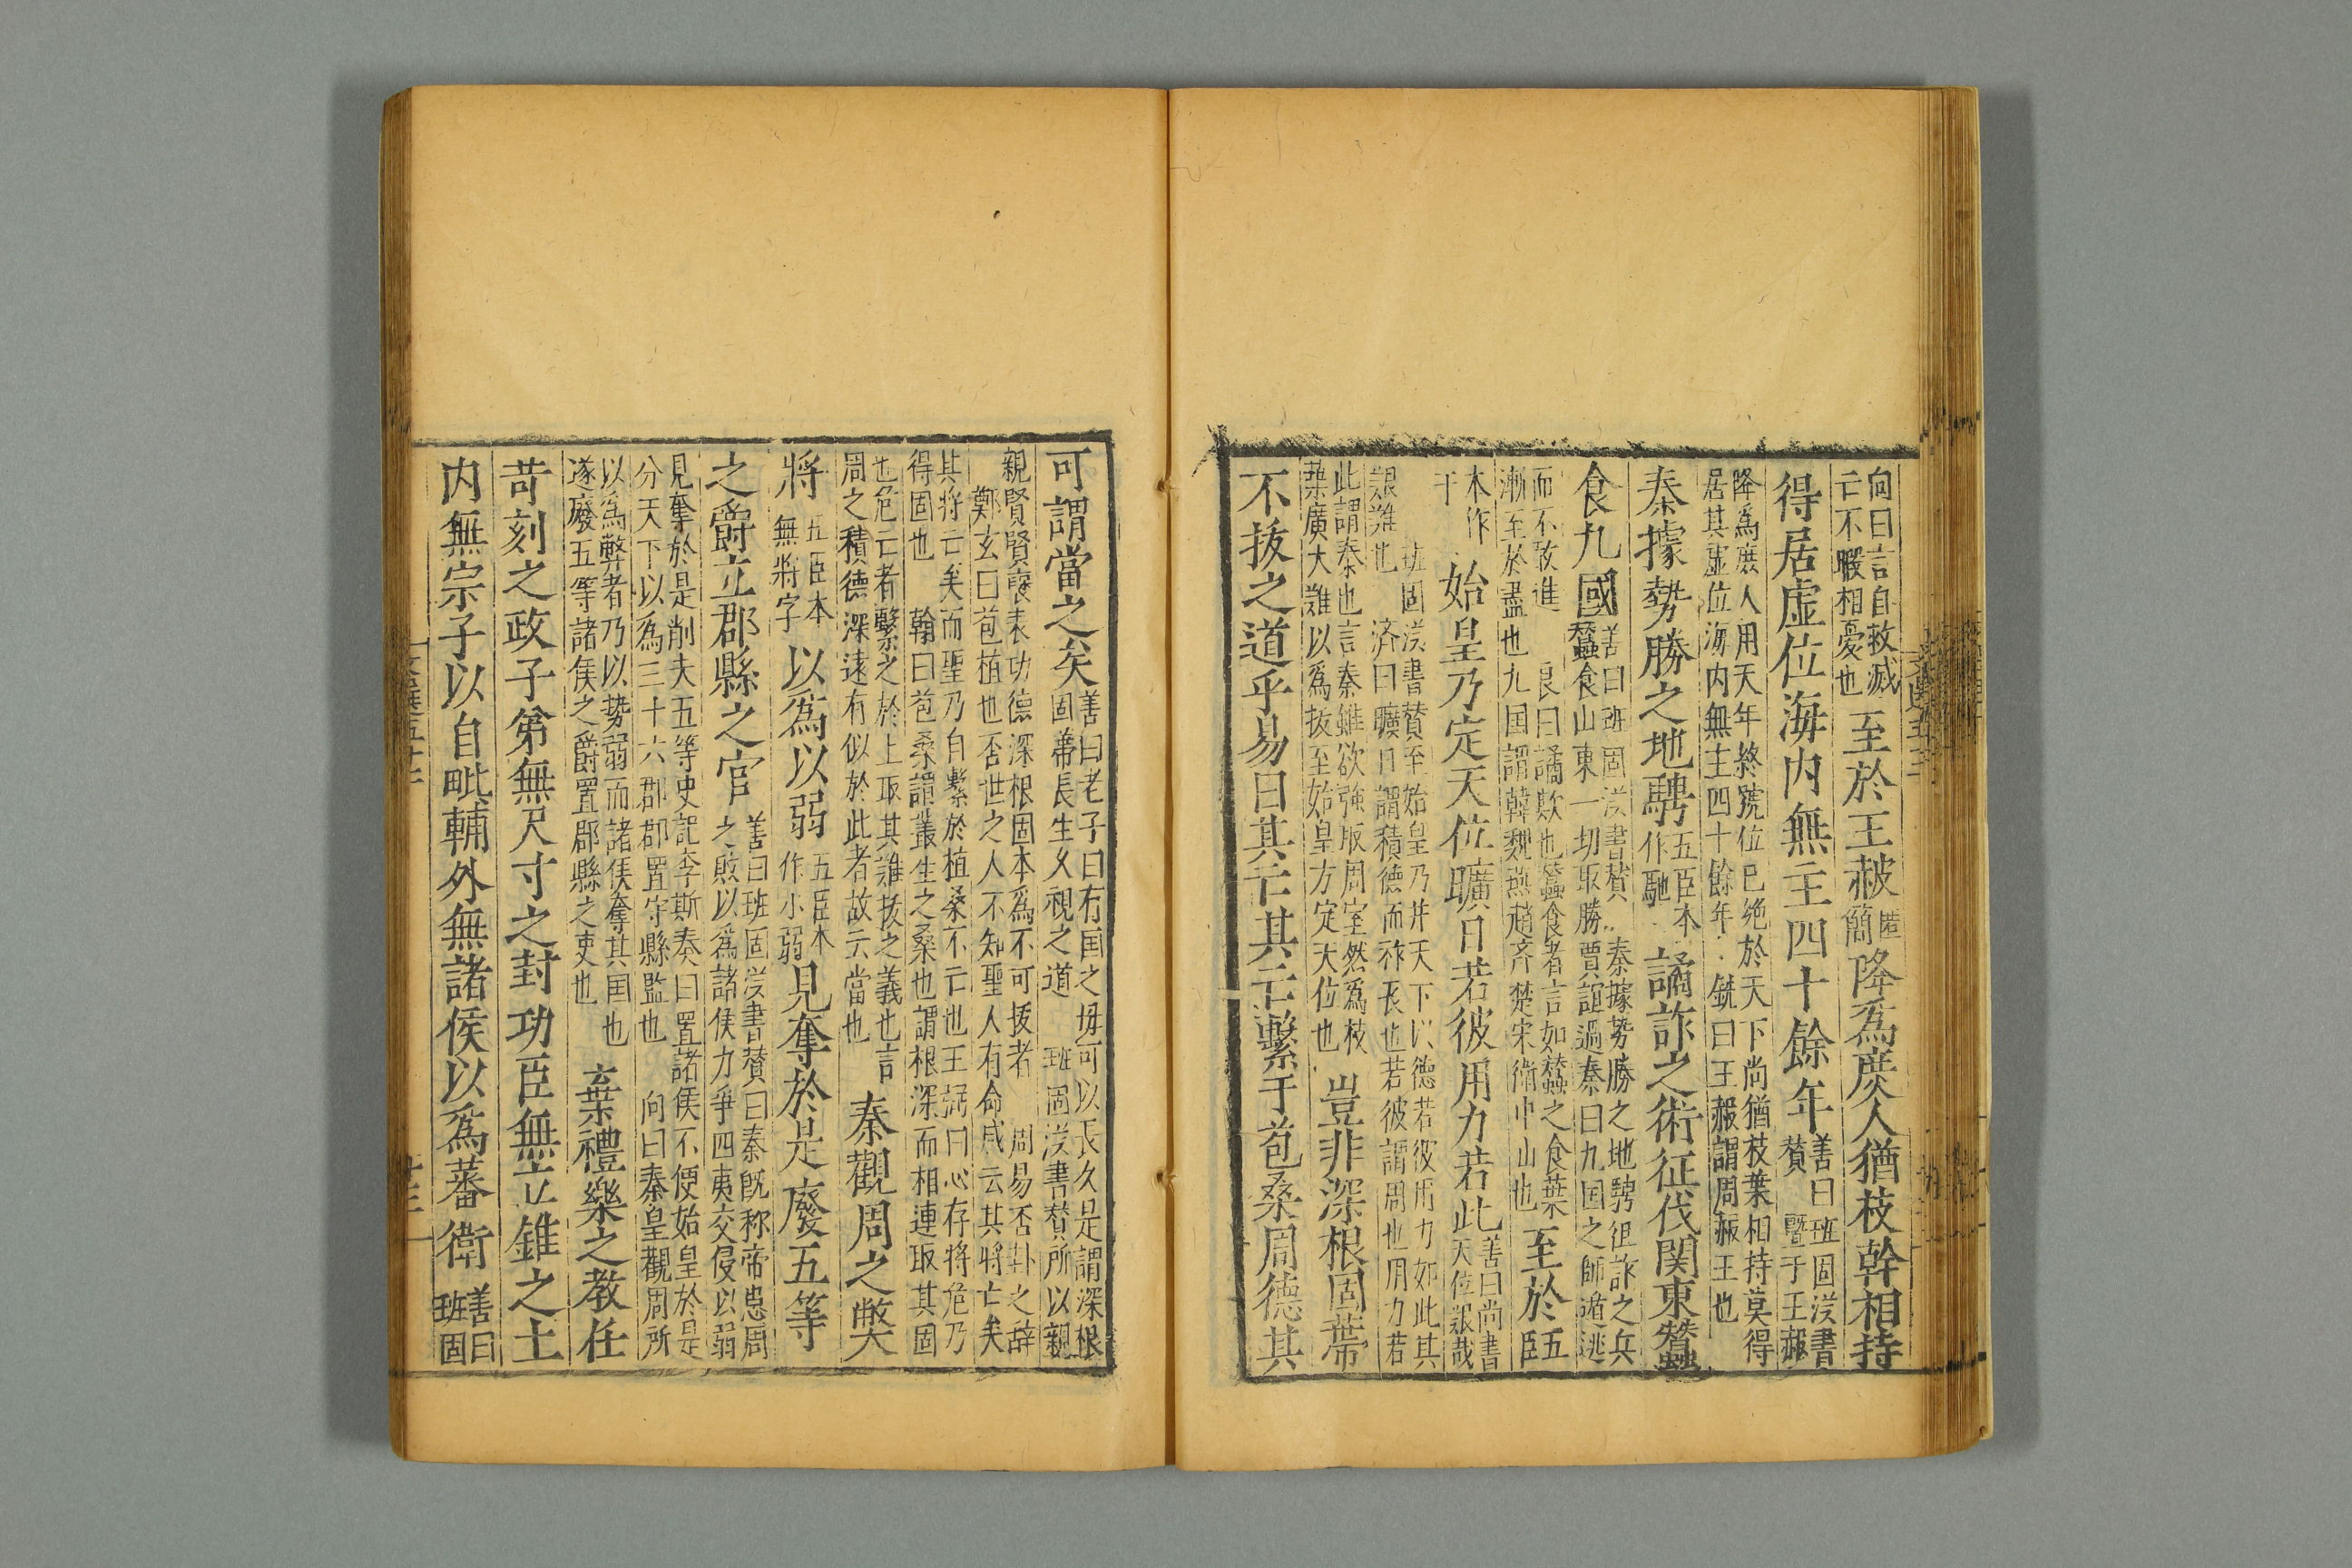 向曰言自救滅
亡不暇相憂也
至於王赧
降為庶人猶枝幹相持
得居虛位海内無主四十餘年
善曰班固漢書
贊曁于王赧
降為庶人用天年終號位已絶於天下尚猶枝葉相持莫得
居其虛位海内無主四十餘年
銑曰王赧謂周赧王也
秦據勢勝之地騁
五臣本
作馳
譎詐之術征伐関東蠶
食九國
善曰班固漢書贊
秦據勢勝之地騁徂詐之兵
蠶食山東一切取勝賈誼過秦曰九国之師遁逃
而不敢進
良曰譎欺也蠶食者言如蠶之食葉
漸至於盡也九国謂韓魏燕趙齐楚宋衛中山也
至於
五臣
本作
于
始皇乃定天位曠日若彼用力若此
善曰尚書
天位艱哉
班固漢書贊至始皇乃并天下以德若彼用力如此其
艱難也
济曰曠日謂積德而祚長也若彼謂周也用力若
此謂秦也言秦雖欲強取周室然為枝
葉廣大難以為拔至始皇方定天位也
豈非深根固蔕
不拔之道乎易曰其亡其亡繫于苞桑周德其
可謂當之矣
善曰老子曰有国之母可以長久是謂深根
固蔕長生乆視之道
班固漢書贊所以親
親賢賢褒表功德深根固本為不可拔者
周易否卦之辞
鄭玄曰苞植也否世之人不知聖人有命咸云其將亡矣
其將亡矣而聖乃自繫於植桑不亡也王弼曰心存將危乃
得固也
翰曰苞桑謂叢生之桑也謂根深而相連取其固
也危亡者繫之於上取其難拔之義也言
周之積德深遠有似於此者故云當也
秦觀周之獘
將
五臣本
無將字
以為以弱
五臣本
作小弱
見奪於是廢五等
之爵立郡縣之官
善曰班固漢書贊曰秦既称帝患周
之敗以為諸侯力爭四夷交侵以弱
見奪於是削去五等史記李斯奏曰置諸侯不便始皇於是
分天下以為三十六郡郡置守縣監也
向曰秦皇觀周所
以為弊者乃以勢弱而諸侯奪其国也
遂廢五等諸侯之爵置郡縣之吏也
棄禮樂之教任
苛刻之政子弟無尺寸之封功臣無立錐之土
内無宗子以自毗輔外無諸侯以為蕃衛
善曰
班固